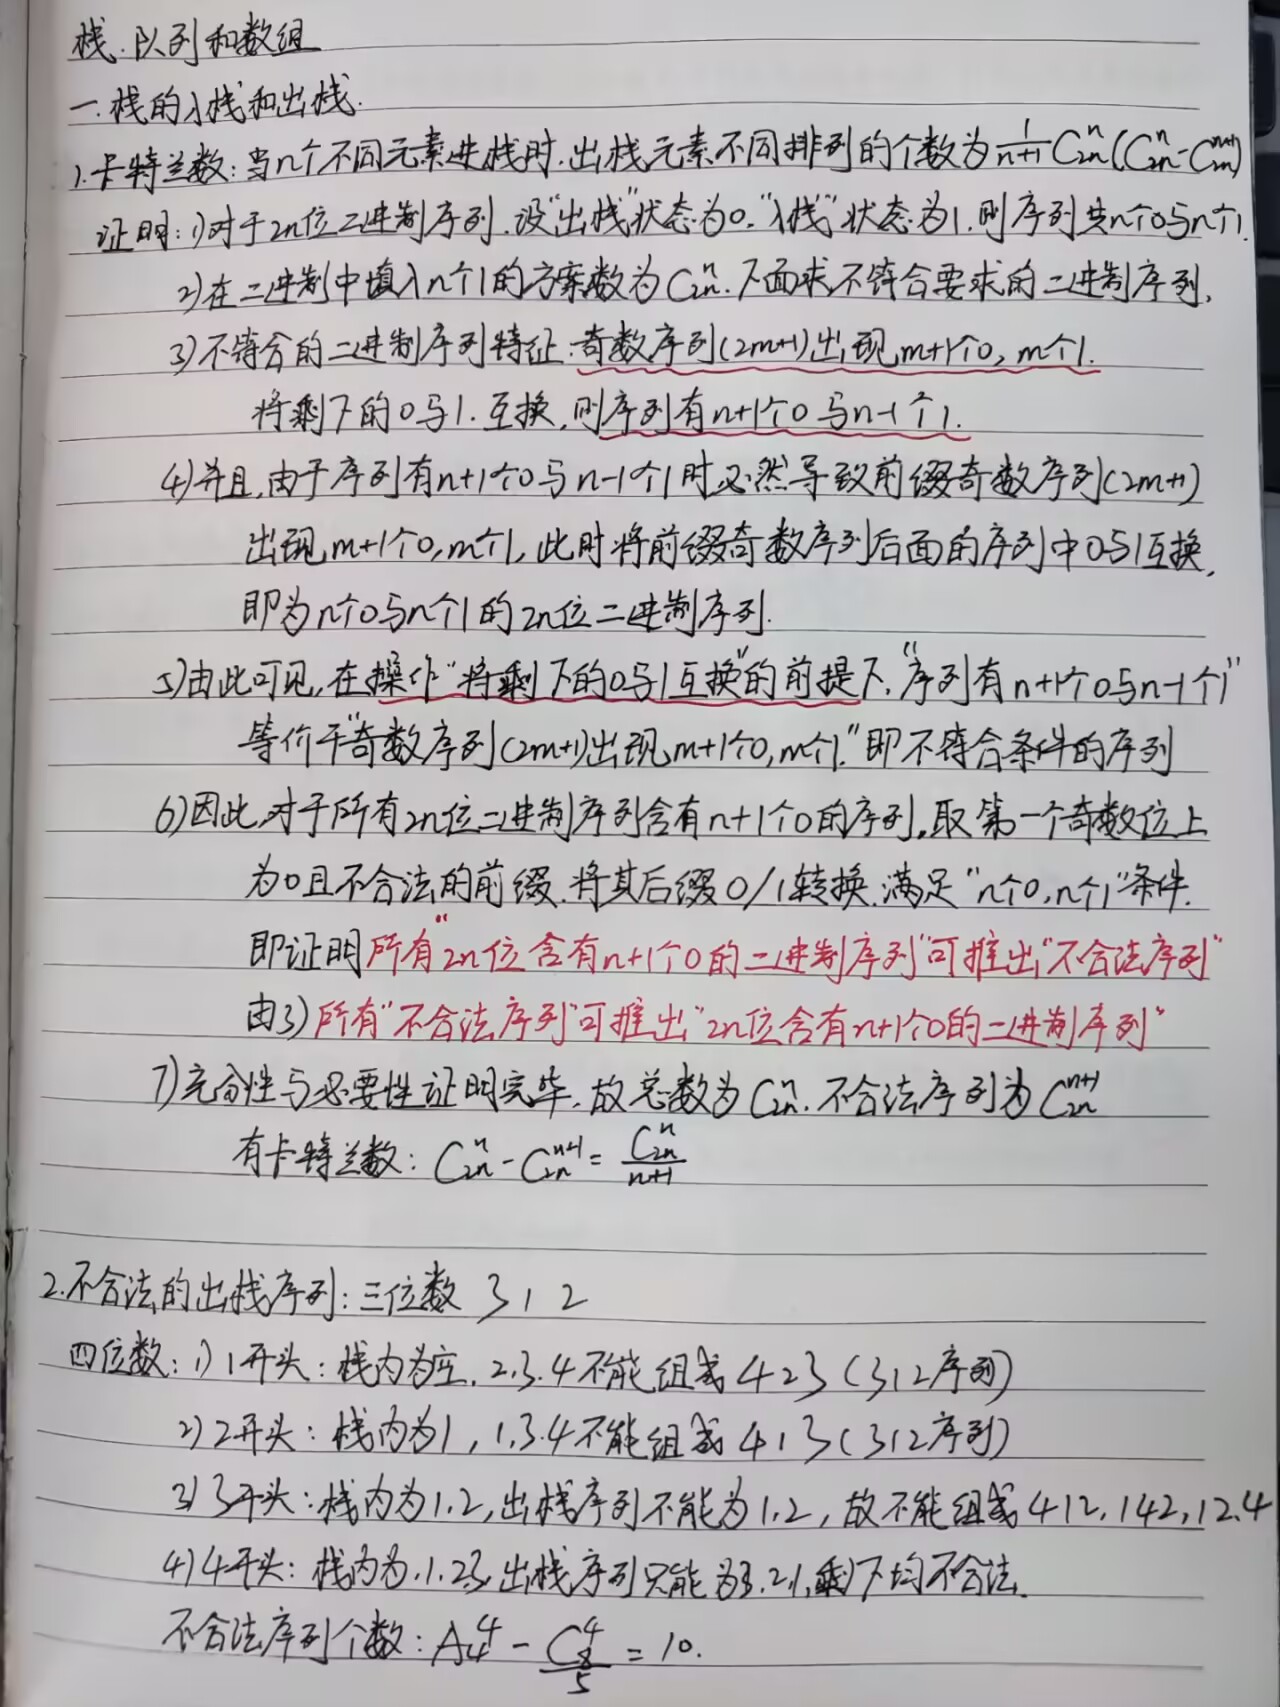 栈.队列和数组
一.栈的入栈和出栈.
1.卡特兰数:当n个不同元素进栈时.出栈元素不同排列的个数为 $\frac{1}{n+1}C_{2n}^{n}$ ($C_{2n}^{n}-C_{2n}^{n+1}$)
证明:1)对于2n位二进制序列.设"出栈"状态为0."入栈"状态为1.则序列共n个0与n个1.
2)在二进制中填入n个1的方案数为 $C_{2n}^{n}$.下面求不符合要求的二进制序列.
3)不符合的二进制序列特征:奇数序列(2m+1)出现m+1个0,m个1.
将剩下的0与1.互换,则序列有n+1个0与n-1个1.
4)并且,由于序列有n+1个0与n-1个1时必然导致前缀奇数序列(2m+1)
出现m+1个0,m个1,此时将前缀奇数序列后面的序列中0与1互换,
即为n个0与n个1的2n位二进制序列.
5)由此可见,在操作"将剩下的0与1互换"的前提下,"序列有n+1个0与n-1个1"
等价于"奇数序列(2m+1)出现m+1个0,m个1."即不符合条件的序列
6)因此,对于所有2n位二进制序列含有n+1个0的序列,取第一个奇数位上
为0且不合法的前缀.将其后缀0/1转换.满足"n个0,n个1"条件.
即证明所有"2n位含有n+1个0的二进制序列"可推出"不合法序列"
由3)所有"不合法序列"可推出"2n位含有n+1个0的二进制序列"
7)充分性与必要性证明完毕.故总数为 $C_{2n}^{n}$.不合法序列为 $C_{2n}^{n+1}$
有卡特兰数: $C_{2n}^{n}-C_{2n}^{n+1}=\frac{C_{2n}^{n}}{n+1}$
2.不合法的出栈序列:三位数 3 1 2
四位数:1)1开头:栈内为空.2.3.4不能组成 4 2 3(3 1 2序列)
2)2开头:栈内为1,1.3.4不能组成 4 1 3(3 1 2序列)
3)3开头:栈内为1.2,出栈序列不能为1.2,故不能组成412.142,12.4
4)4开头:栈内为.1.2.3,出栈序列只能为3.2.1,剩下均不合法.
不合法序列个数: $A_{4}^{4}-\frac{C_{8}^{4}}{5}=10.$